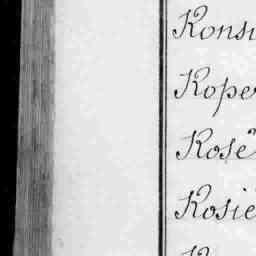 Konsu
Koper
Kose
Kosie